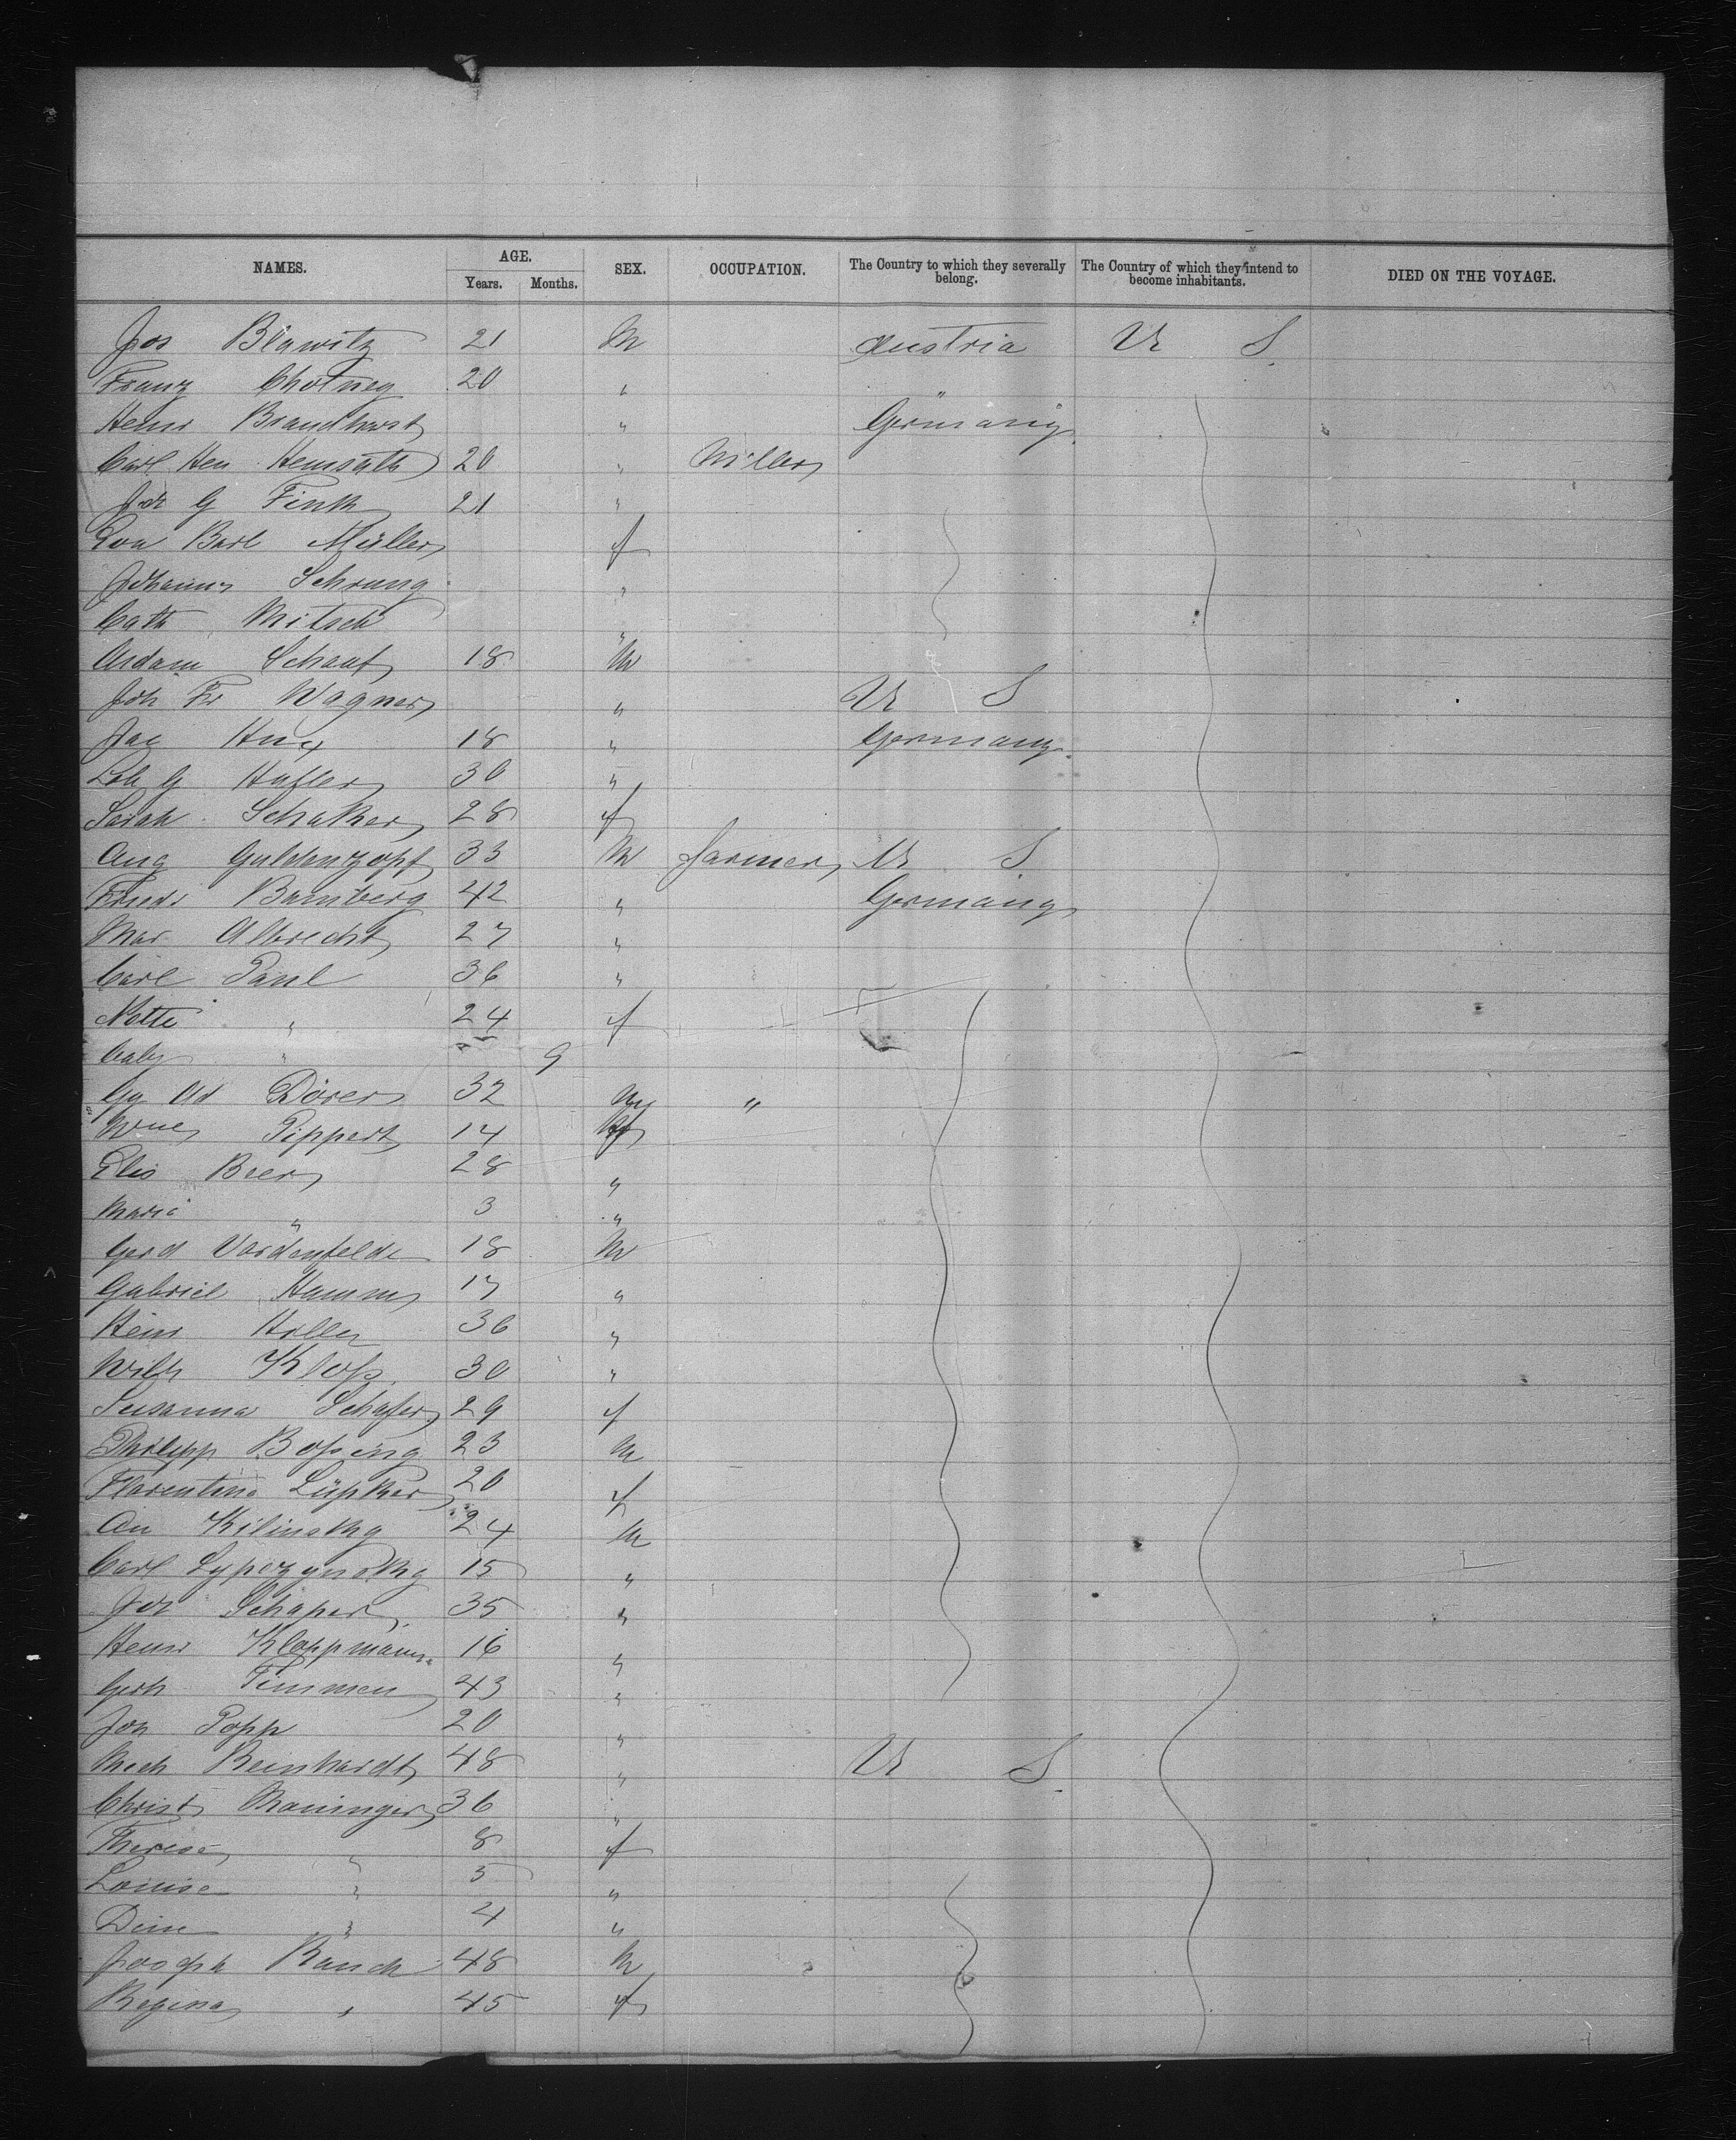 NAMES. AGE. SEX. OCCUPATION. The Country to which they severally belong. The Country of which they intend to become inhabitants. DIED ON THE VOYAGE.
Years. Months.
Jos Blawitz 21 M Austria U S
Franz Chotney 20 " "
Henr Brandhorst " Germany
Carl Hen Hemsath 20 " Miller
Joh G Fink 21 "
Eva Barb Müller f
Johanna Schrung "
Cath Mitsch "
Adam Schaaf 18 M
Joh Fr Wagner " U S
Jac Hux 18 " Germany
G Hafler 30 "
Sarah Schalker 28 f
Aug Guldenzopf 33 M farmer U S
Friedr Bamberg 42 " Germany
Mar Albrecht 27 "
Carl Paul 36 "
Nette " 24 f
baby " 9
Gg Ad Dörer 32 M "
Wne Pippert 14 f
Elis Beer 28 "
Marie " 3 "
Gerd Vardenfelde 18 M
Gabriel Hamm 17 "
Henr Holley 36 "
Wilh Kloß 30 "
Susanna Schafer 29 f
Philipp Boßing 23 M
Florentine Lüpker 20 f
An Kilinsky 24 M
Carl Lypczynsky 15 "
Joh Schaper 35 "
Henr Kloppmann 16 "
Gerh Timmen 43 "
Joh Popp 20 "
Mich Reinhardt 48 " U S
Christ Maninger 36 "
Therese " 8 f
Louise " 5 "
" 4 "
Joseph Rauch 48 M
Regina " 45 f